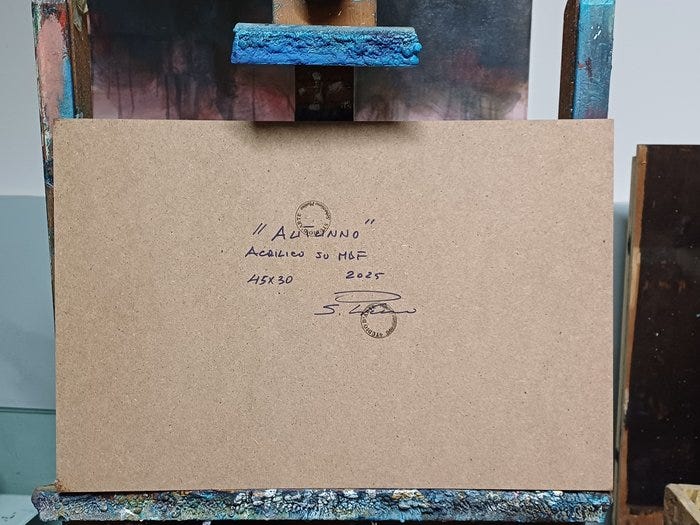 "AUTUNNO"
ACRILICO SU MDF
45X30 2025
S.